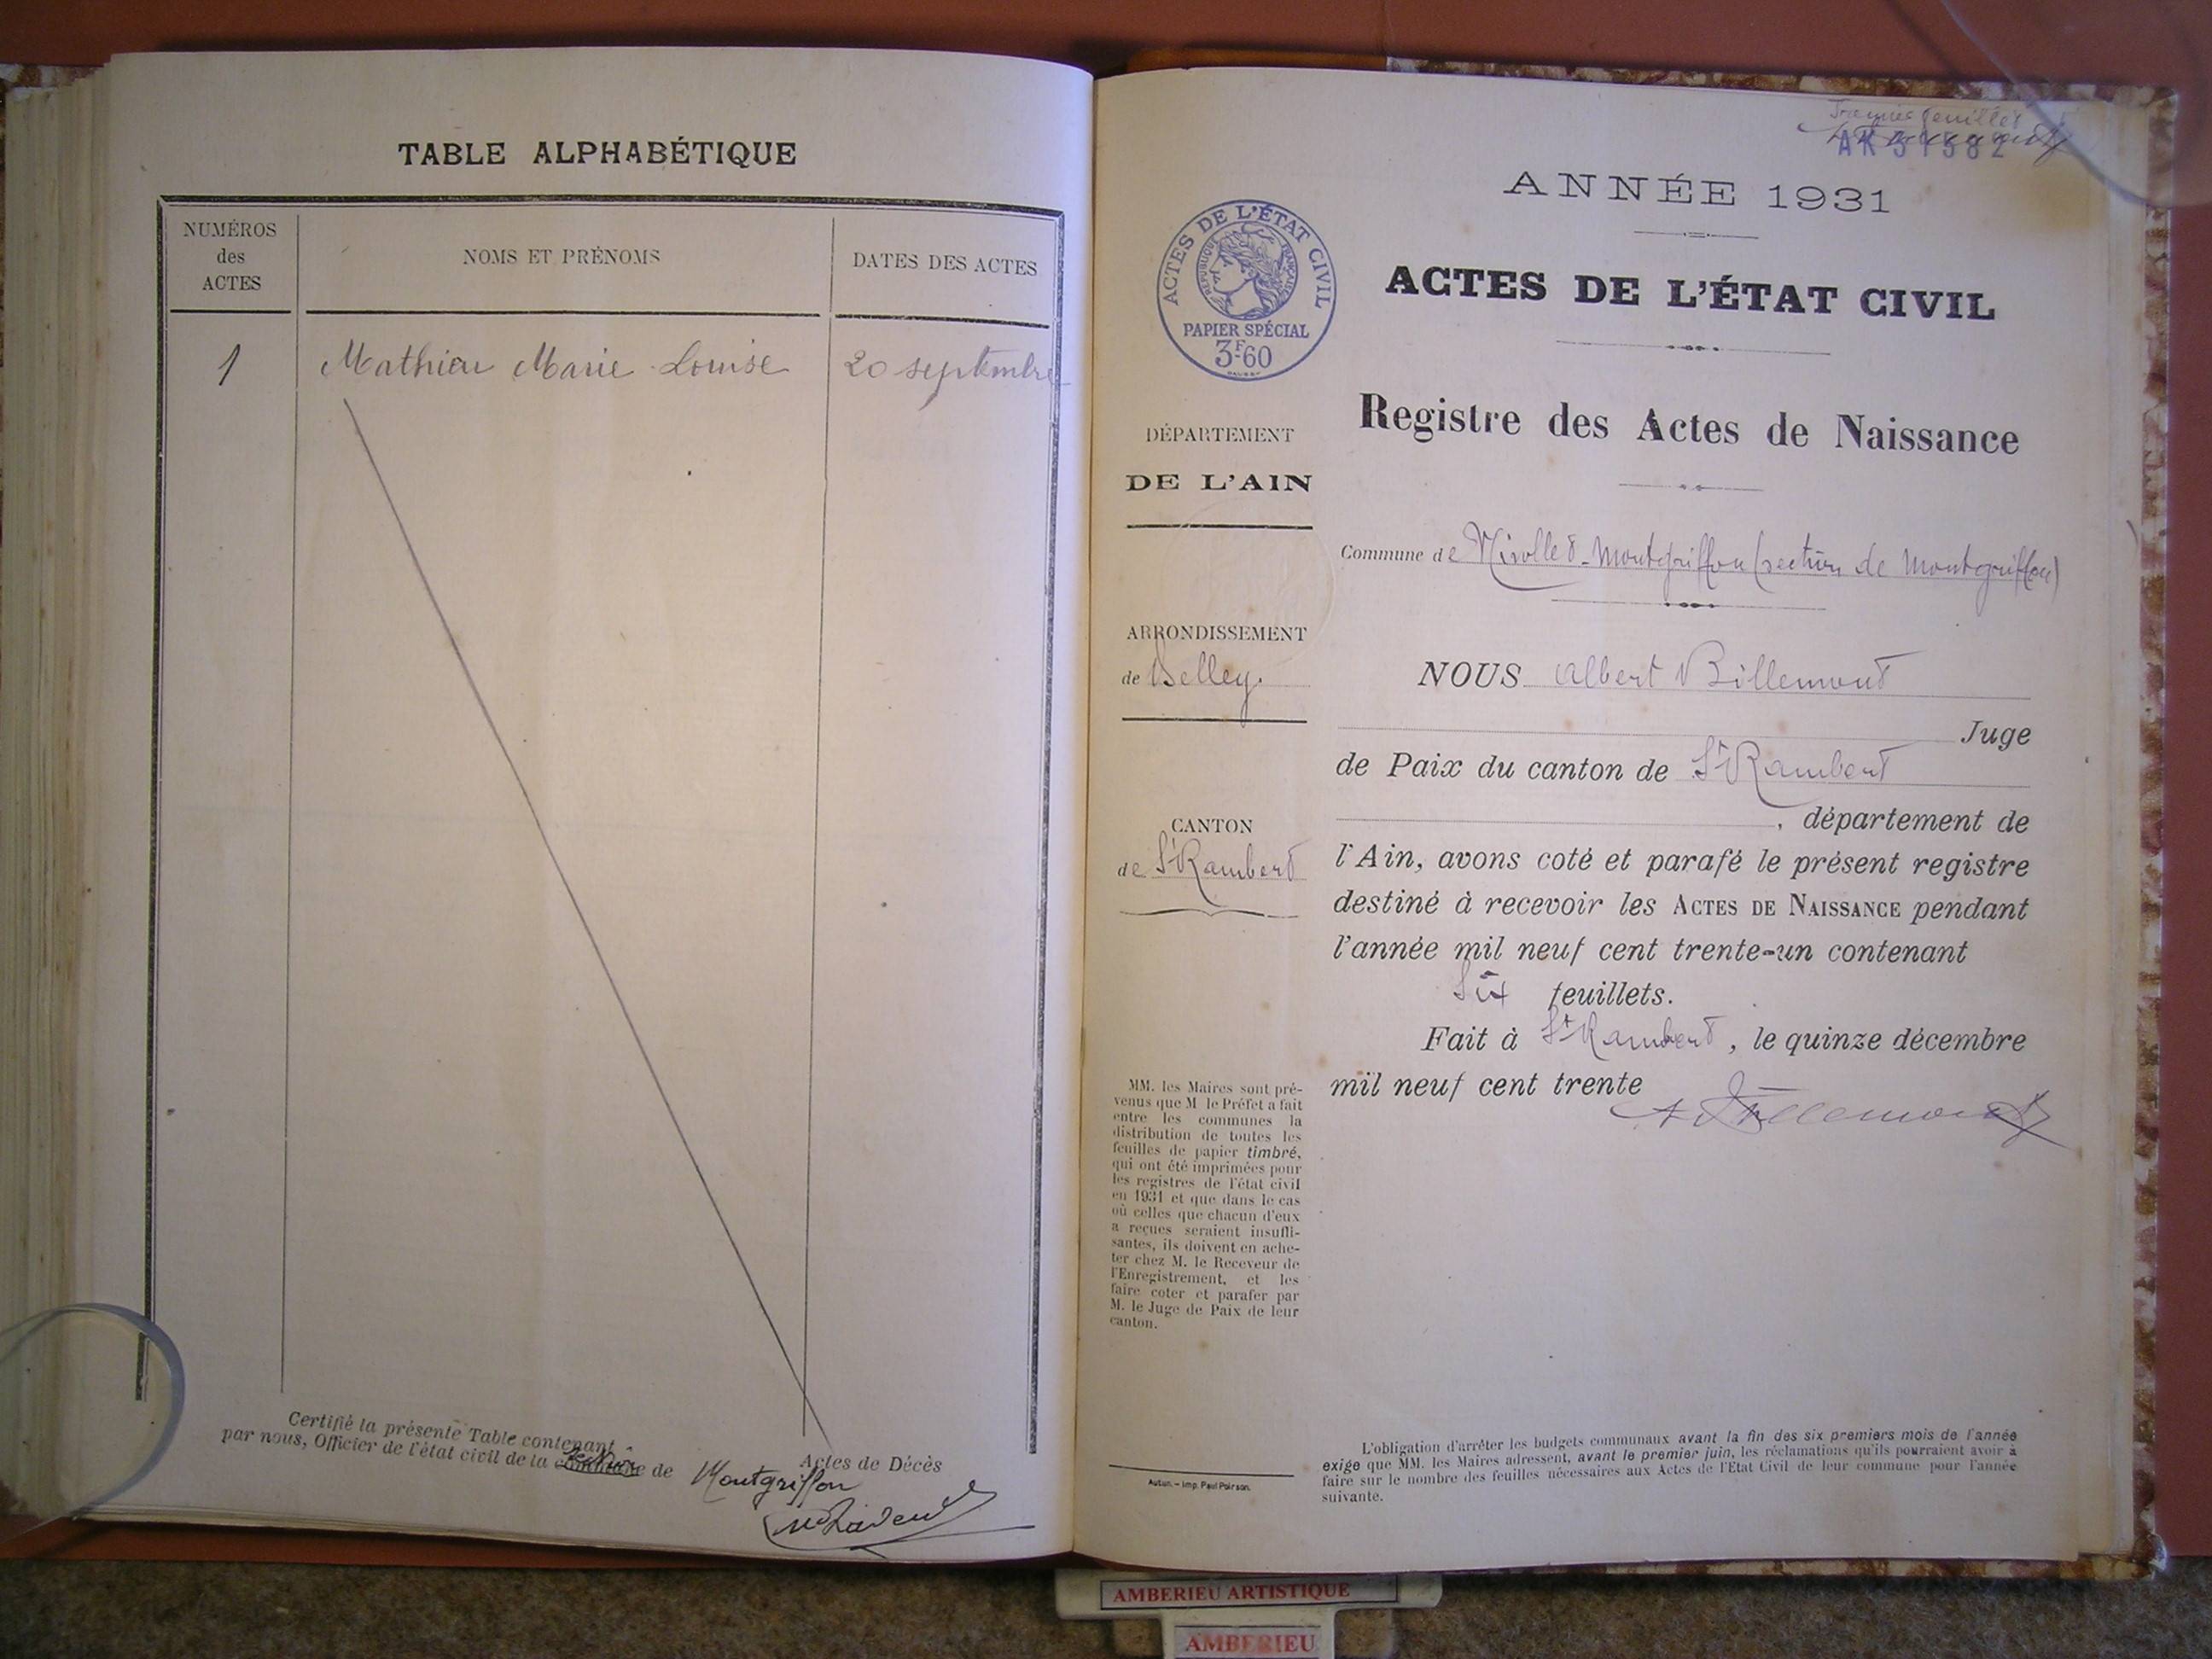 TABLE ALPHABÉTIQUE
NUMÉROS
des
ACTES
NOMS ET PRÉNOMS
DATES DES ACTES
1
Mathieu Marie Louise
20 septembre
Certifié la présente Table contenant
Actes de Décès
par nous, Officier de l'état civil de la commune de Montgriffon
AK 31582
ANNÉE 1931
ACTES DE L'ÉTAT CIVIL
RÉPUBLIQUE FRANÇAISE
PAPIER SPÉCIAL
3F60
ACTES DE L'ÉTAT CIVIL
Registre des Actes de Naissance
DÉPARTEMENT
DE L'AIN
Commune de Nivollet-Montgriffon (section de Montgriffon)
ARRONDISSEMENT
de Belley
NOUS Albert Billemont
Juge
de Paix du canton de St Rambert
CANTON
de St Rambert
, département de
l'Ain, avons coté et parafé le présent registre
destiné à recevoir les ACTES DE NAISSANCE pendant
l'année mil neuf cent trente-un contenant
Six feuillets.
Fait à St Rambert, le quinze décembre
mil neuf cent trente
ABillemont
MM. les Maires sont pré-
venus que M. le Préfet a fait
entre les communes la
distribution de toutes les
feuilles de papier timbré,
qui ont été imprimées pour
les registres de l'état civil
en 1931 et que dans le cas
où celles que chacun d'eux
a reçues seraient insuffi-
santes, ils doivent en ache-
ter chez M. le Receveur de
l'Enregistrement, et les
faire coter et parafer par
M. le Juge de Paix de leur
canton.
Autun. - Imp. Paul Poirson.
L'obligation d'arrêter les budgets communaux avant la fin des six premiers mois de l'année
exige que MM. les Maires adressent, avant le premier juin, les réclamations qu'ils pourraient avoir à
faire sur le nombre des feuilles nécessaires aux Actes de l'Etat Civil de leur commune pour l'année
suivante.
AMBERIEU ARTISTIQUE
AMBERIEU